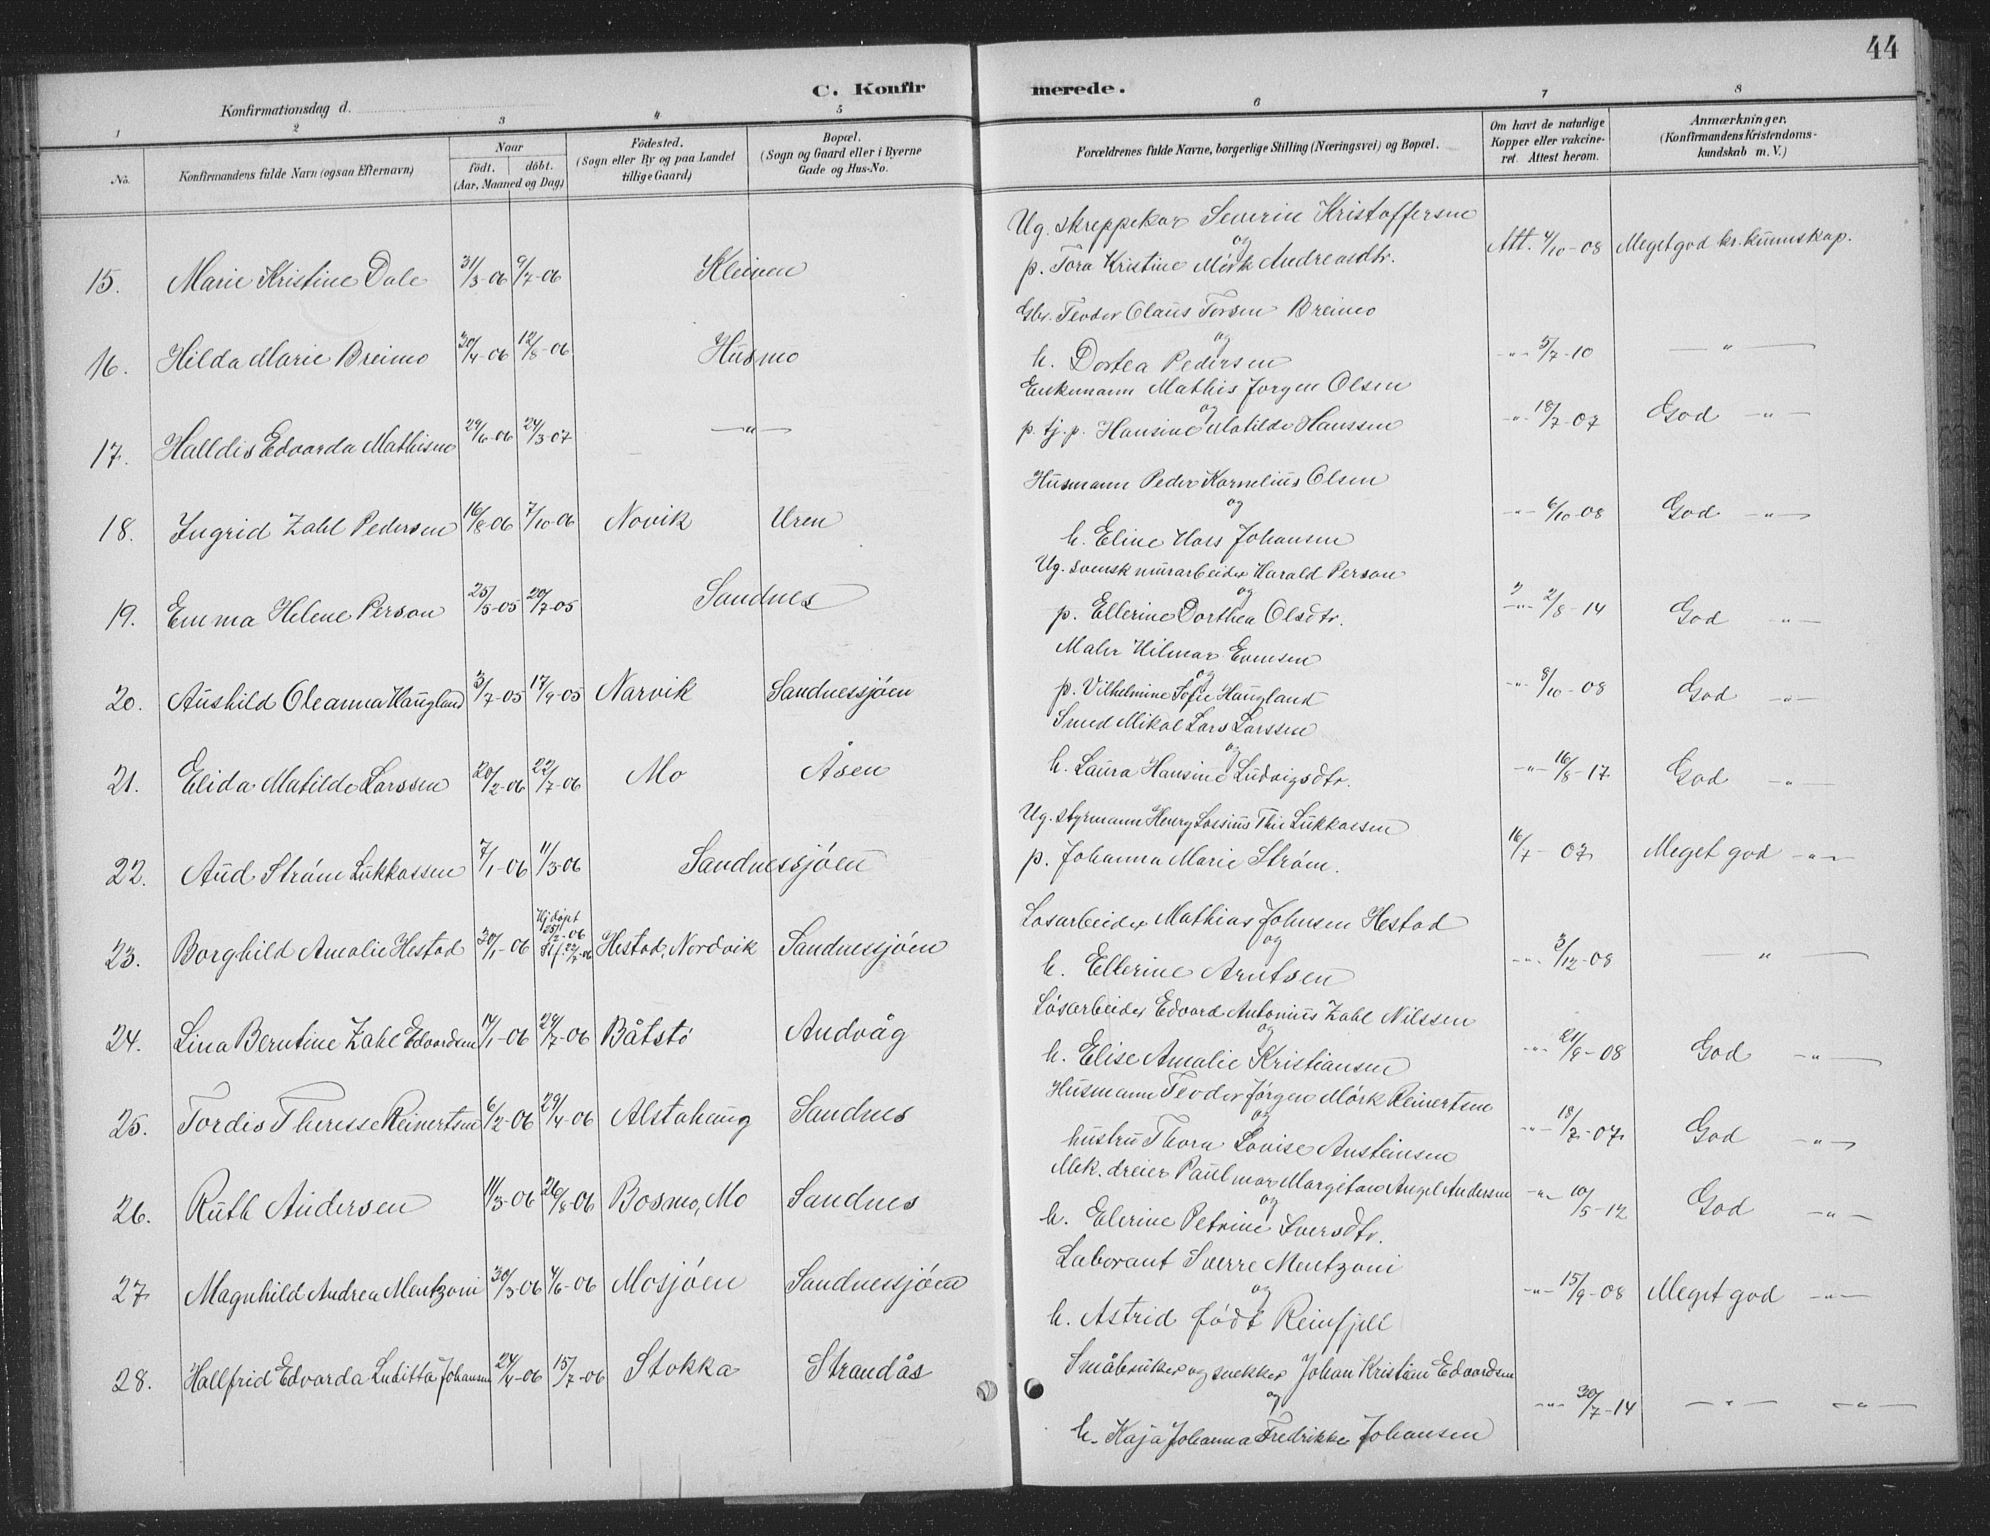 44
C. Konfirmerede.
Konfirmationsdag d.
1 2 3 4 5 6 7 8
No. Konfirmandens fulde Navn (ogsaa Efternavn) Naar födt. döbt. (Aar, Maaned og Dag) Födested. (Sogn eller By og paa Landet tillige Gaard) Bopæl. (Sogn og Gaard eller i Byerne Gade og Hus-No. Forældrenes fulde Navne, borgerlige Stilling (Næringsvei) og Bopæl. Om havt de naturlige Kopper eller vakcineret. Attest herom. Anmærkninger. (Konfirmandens Kristendomskundskab m.V.)
Ug. skreppekar Severin Kristoffersen
og
15. Marie Kristine Dale 31/3-06 9/7-06 Kleiven p. Tora Kristine Mörk Andreasdtr. Att. 4/10-08 Meget god kr. kunnskap.
Gbr. Teodor Claus Torsen Breimo
og
16. Hilda Marie Breimo 30/4-06 12/8-06 Husmo h. Dortea Pedersen -"- 5/7-10 — " —
Enkemann Mathis Jorgen Olsen
og
17. Halldis Edvarda Mathisen 29/6-06 24/3-07 — " — p. tj. p. Hansine Matilde Hanssen -"- 18/7-07 God -"-
Husmann Peder Kornelius Olsen
og
18. Ingrid Zahl Pedersen 16/8-06 7/10-06 Novik Uren h. Eline Hass Johansen -"- 6/10-08 God -"-
Ug. svensk murarbeider Harald Person
og
19. Emma Helene Person 25/5-05 20/7-05 Sandnes p. Ellerine Dorthea Olsdtr. -"- 2/8-14 God -"-
Maler Hilmar Evensen
og
20. Aushild Oleanna Haugland 3/7-05 17/9-05 Narvik Sandnessjöen p. Vilhelmine Sofie Haugland -"- 8/10-08 God -"-
Smed Mikal Lars Larssen
og
21. Elida Matilde Larssen 20/2-06 22/7-06 Mo Åsen h. Laura Hansine Ludvigsdtr. -"- 16/8-17 God -"-
Ug. styrmann Henry Lossius Thie Lukkassen
22. Aud Ström Lukkassen 7/1-06 11/3-06 Sandnessjöen p. Johanna Marie Ström. 16/7-07 Meget god -"-
Losarbeider Mathias Johnsen Hestad
og
23. Borghild Amalie Hestad 30/1-06 Hj. döpt Hestad, Nordvik Sandnessjöen h. Ellerine Arntsen -"- 3/12-08 — " —
Lösarbeider Edvard Antonius Zahl Nilssen
og
24. Lina Berntine Zahl Edvardsen 14/1-06 29/7-06 Båtstö Andvåg h. Elise Amalie Kristiansen -"- 21/9-08 God -"-
Husmann Teodor Jörgen Mörk Reinertsen
og
25. Tordis Theresse Reinertsen 6/2-06 29/4-06 Alstahaug Sandnes hustru Thora Lovise Austeinsen -"- 18/7-07 God -"-
Mek. dreier Paul mar Margitan Angel Andersen
og
26. Ruth Andersen 11/3-06 26/8-06 Bosmo, Mo Sandnes h. Elerine Petrine Iversdtr. -"- 10/5-12 God -"-
Laborant Sverre Mentzoni
og
27 Magnhild Andrea Mentzoni 30/3-06 4/6-06 Mosjöen Sandnessjöen h. Astrid født Reinfjell -"- 15/9-08 Meget god -"-
Småbruker og snekker Johan Kristian Edvardsen
og
28. Hallfrid Edvarda Luditta Johansen 24/4-06 15/7-06 Stokka Strandås h. Kaja Johanna Fredrikke Johansen -"- 30/7-14 — " — -"-